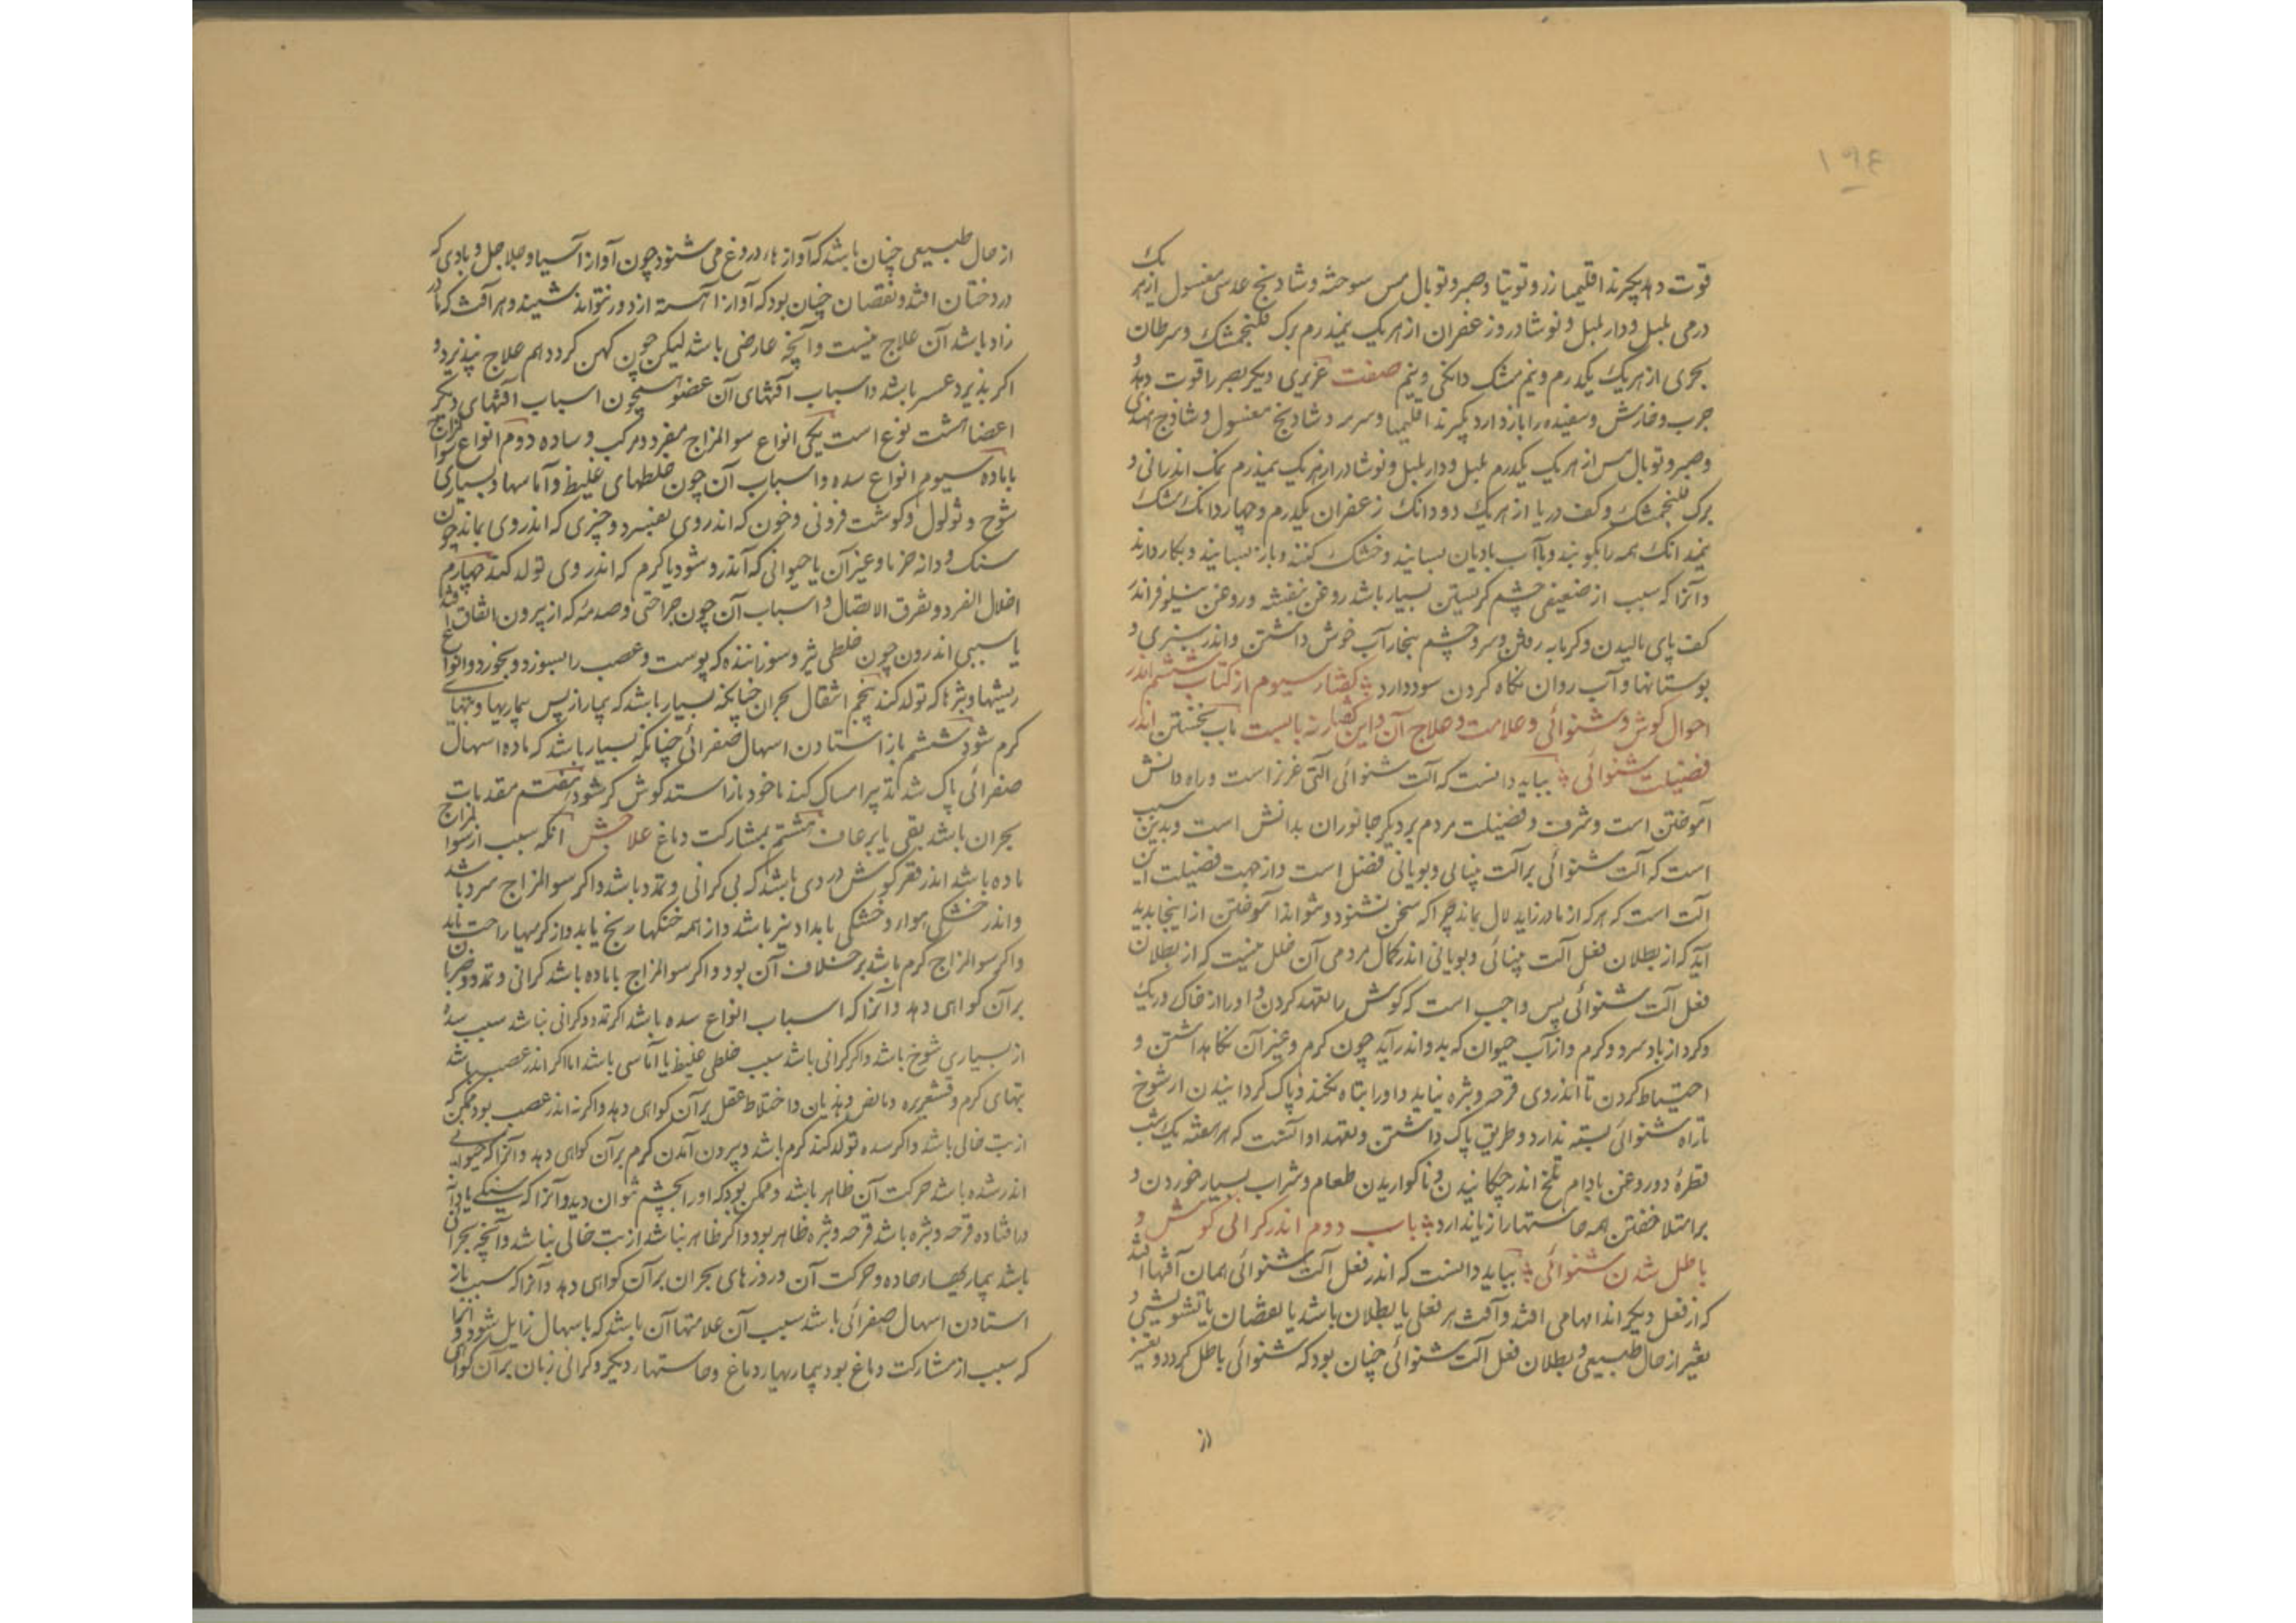 ۱۹٤
قوت دهد بگیرند اقلیمیا زر و توتیا و صبر و توبال مس سوخته و شادنج عدسی مغسول از هر یک
درمی پلپل و دارپلپل و نوشادر و زعفران از هر یک نیمدرم برک فلنجمشک و سرطان
بحری از هر یک یکدرم و نیم مشک دانکی و نیم صفت عزیزی دیکر بصر را قوت دهد و
جرب و خارش و سفیده را باز دارد بکیرند اقلیمیا و سرمه و شادنج مغسول و شاذج هندی
و صبر و توبال مس از هر یک یکدرم پلپل و دارپلپل و نوشادر از هر یک نیمدرم نمک اندرانی و
برک فلنجمشک و کف دریا از هر یک دو دانک زعفران یکدرم و چهار دانک مشک
نیمدانک همه را بکوبند و باآب بادیان بسایند و خشک کنند و باز بسایند و بکار دارند
و آنرا که سبب از ضعیفی چشم کریستن بسیار باشد روغن بنفشه و روغن نیلوفر اندر
کف پای مالیدن و کرمابه رفتن و سر و چشم ببخار آب خوش داشتن و اندر سبزی و
بوستانها و آب روان نکاه کردن سود دارد کفتار سیوم از کتاب ششم اندر
احوال کوش و شنوائی و علامت و علاج آن و این کفتار نه بابست باب نخستین اندر
فضیلت شنوائی بباید دانست که آلت شنوائی آلتی عزیز است و راه دانش
آموختن است و شرف و فضیلت مردم بر دیکر جانوران بدانش است و بدین سبب
است که آلت شنوائی بر آلت بینائی و بویائی فضل است و از جهت فضیلت این
آلت است که هر که از مادر زاید لال بماند چرا که سخن نشنود و نتواند آموختن از اینجا بدید
آید که از بطلان فعل آلت بینائی و بویائی اندر کمال مردمی آن خلل نیست که از بطلان
فعل آلت شنوائی پس واجب است که کوش را تعهد کردن و او را از خاک و ریک
و کرد از باد سرد و کرم و از آب حیوان که بدو اندر آید چون کرم و غیر آن نکاهداشتن و
احتیاط کردن تا اندر وی قرحه و بثره نیاید و او را تباه نکند و پاک کردانیدن از شوخ
تا راه شنوائی بسته ندارد و طریق پاک داشتن و تعهد او آنست که هر هفته یک شب
قطرهٔ دو روغن بادام تلخ اندر چکانیدن و ناکواریدن طعام و شراب بسیار خوردن و
بر امتلا خفتن همه حاستها را زیان دارد باب دوم اندر کرانی کوش و
باطل شدن شنوائی بباید دانست که اندر فعل آلت شنوائی همان آفتها افتد
که از فعل دیکر اندامها می افتد و آفت هر فعلی یا بطلان باشد یا نقصان یا تشویشی و
تغیر از حال طبیعی و بطلان فعل آلت شنوائی چنان بود که شنوائی باطل کردد و تغیر
از
از حال طبیعی چنان باشد که آوازهاء دروغ می شنود چون آواز آسیا و جلاجل و بادی که
در درختان افتد و نقصان چنان بود که آواز آهسته از دور نتواند شنیند و هر آفت که مادر
زاد باشد آن علاج نیست و آنچه عارضی باشد لیکن چون کهن کردد هم علاج نپذیرد و
اکر پذیرد عسر باشد و اسباب آفتهای آن عضو همچون اسباب آفتهای دیکر
اعضا هشت نوع است یکی انواع سوالمزاج مفرد و مرکب و ساده دوم انواع سوالمزاج
با ماده سیوم انواع سده و اسباب آن چون خلطهای غلیظ و آماسها و بسیاری
شوخ و ثولول و کوشت فزونی و خون که اندر وی بفسرد و چیزی که اندر وی بماند چون
سنک و دانه خرما و غیر آن یا حیوانی که اندر شود یا کرم که اندر وی تولد کند چهارم
اخلال الفرد و تفرق الاتصال و اسباب آن چون جراحتی و صدمهٔ که از بیرون اتفاق افتد
یا سببی اندرون چون خلطی تیز و سوزاننده که پوست و عصب را بسوزد و بخورد و انواع
ریشها و بثرها که تولد کند پنجم انتقال بحران چنانکه بسیار باشد که بیمار از پس بیماریها و تبهای
کرم شود ششم باز استادن اسهال صفرائی چنانکه بسیار باشد که ماده اسهال
صفرائی پاک شد تدبیر امساک کند تا خود باز استد کوش کر شود هفتم مقدمات
بحران باشد بقی یا برعاف هشتم بمشارکت دماغ علاجش آنکه سبب از سوالمزاج
ماده باشد اندر قعر کوش دردی باشد که بی کرانی و تمدد باشد و اکر سوالمزاج سرد باشد
و اندر خشکی هوا رو خشکی بامداد بیتر باشد و از همه خنکیها رنج یابد و از کرمیها راحت یابد
و اکر سوالمزاج کرم باشد بر خلاف آن بود و اکر سوالمزاج با ماده باشد کرانی و تمدد و ضربان
بر آن کواهی دهد و آنرا که اسباب انواع سده باشد اکر تمدد و کرانی نباشد سبب سده
از بسیاری شوخ باشد و اکر کرانی باشد سبب خلطی غلیظ یا آماسی باشد اما اکر اندر عصب باشد
تبهای کرم و قشعریره و نافض و هذیان و اختلاط عقل بر آن کواهی دهد و اکر نه اندر عصب بود ممکن که
از تب خالی باشد و اکر سده تولد کند کرم باشد و بیرون آمدن کرم بر آن کواهی دهد و آنرا که حیوانی
اندر شده باشد حرکت آن ظاهر باشد و ممکن بود که او را بچشم توان دید و آنرا که سنکی یا دانه
در افتاده قرحه و بثره باشد قرحه و بثره ظاهر بود و اکر ظاهر نباشد از تب خالی نباشد و آنچه بحران
باشد بیماریهاء حاده و حرکت آن و روزهای بحران بر آن کواهی دهد و آنرا که سبب باز
استادن اسهال صفرائی باشد سبب آن علامتها آن باشد که با سهال زایل شود و آنرا
که سبب از مشارکت دماغ بود بیماریهاء دماغ و حاستهاء دیکر و کرانی زبان بر آن کواهی